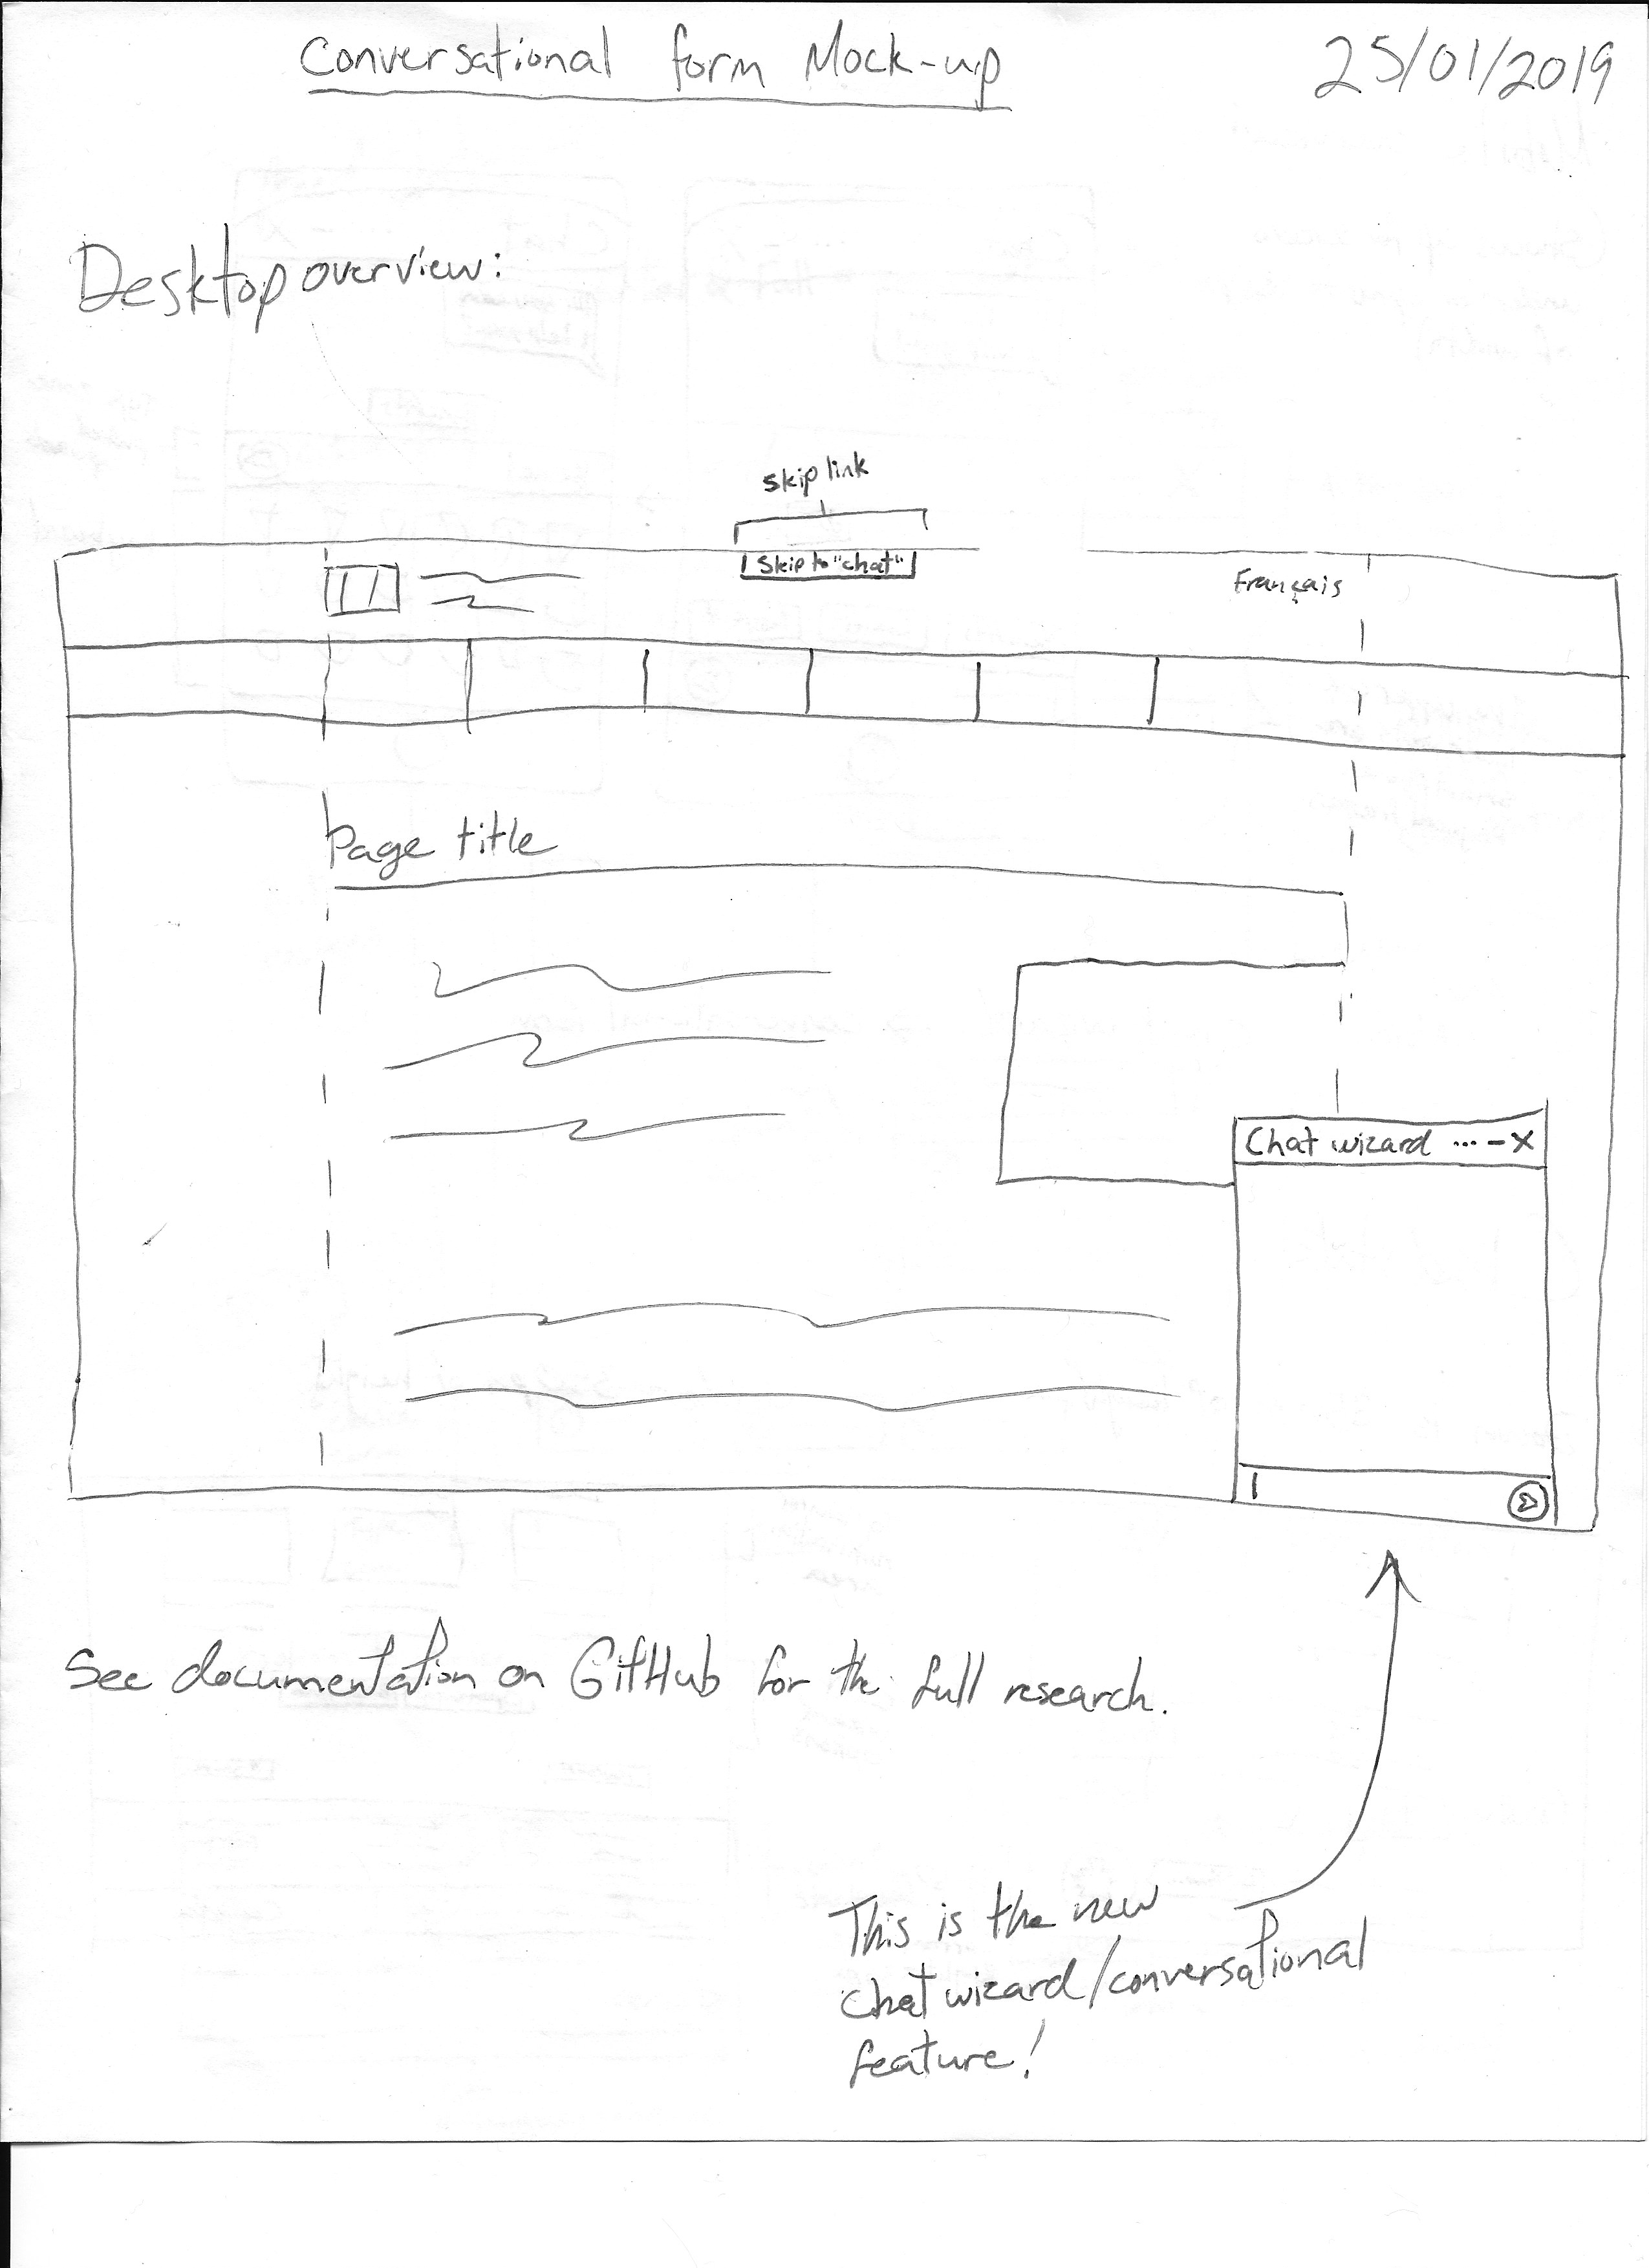 Conversational form Mock-up
25/01/2019
Desktop overview:
skip link
Skip to "chat"
Français
Page title
Chat wizard ... - X
See documentation on GitHub for the full research.
This is the new
chat wizard/conversational
feature!